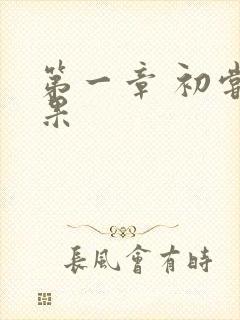 第一章 初嘗
果
長風會有時